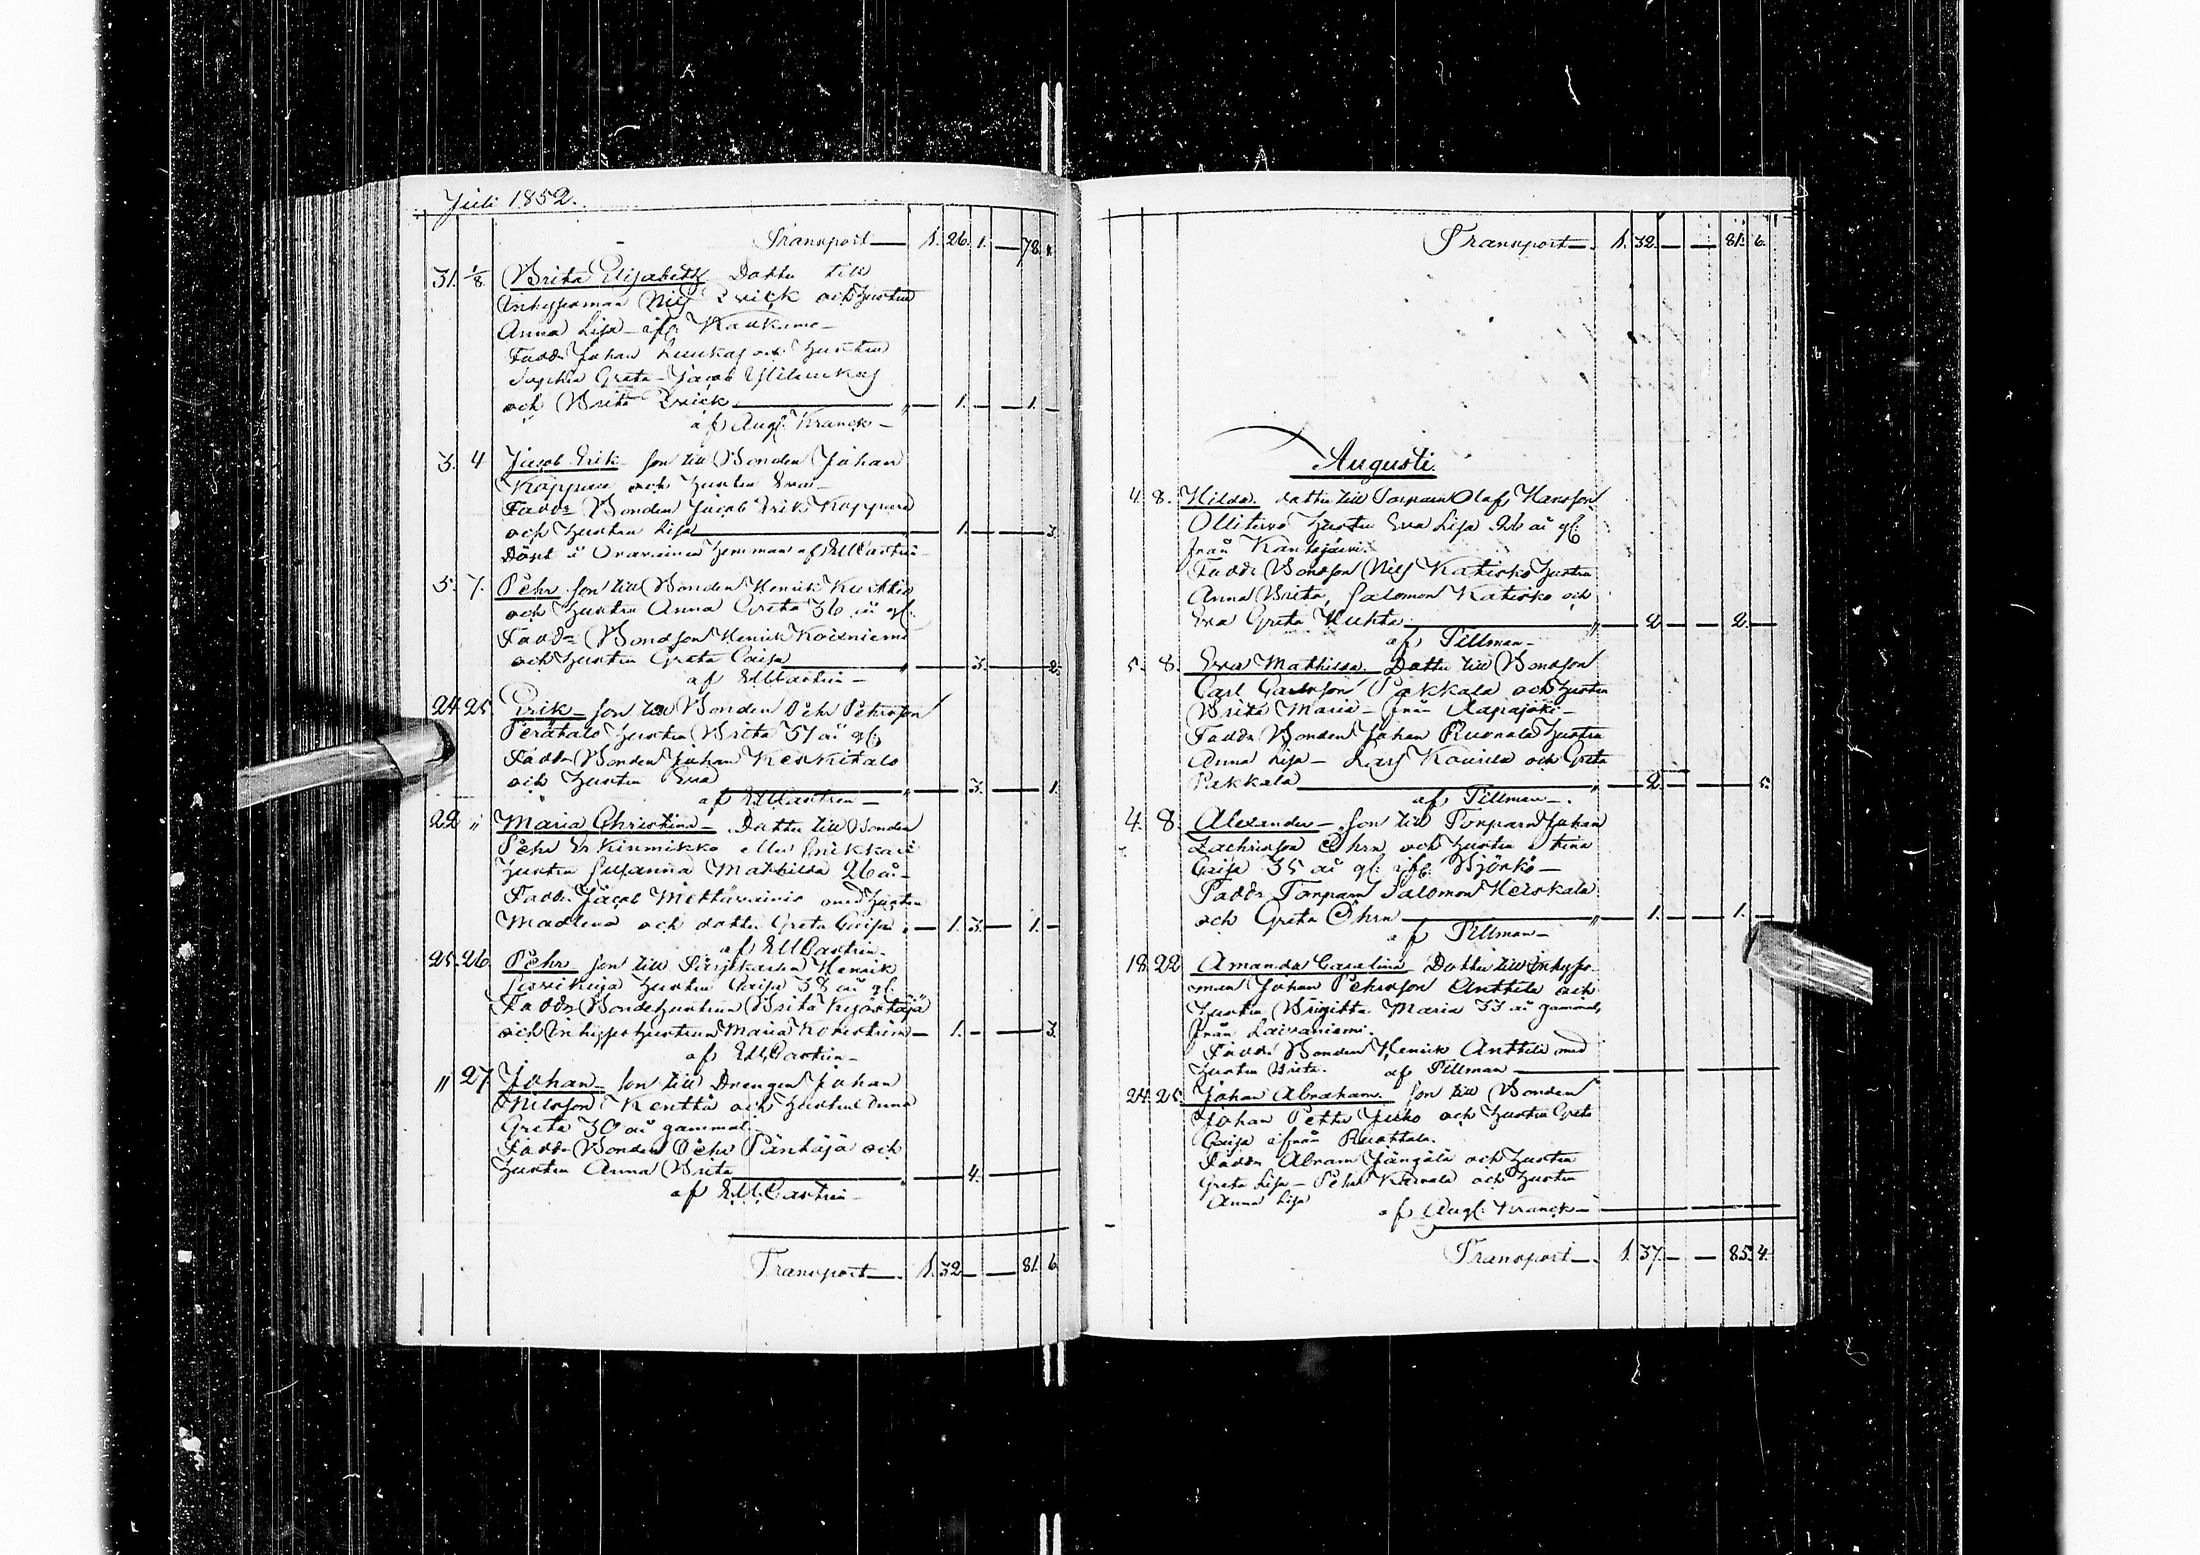 Juli 1852.
Transport — 1. 26. 1. — 78. 1.
31. 1/8. Brita Elisabeth Dotter till
Inhysesman Nils Zvick och Hustrun
Anna Lisa ifr. Kaukamo —
Faddr Johan Luukas och Hustrun
Sophia Greta — Jacob Yliluukas
och Brita Zvick — " — 1. — — 1. —
af Aug. Kranck —
3. 4 Jacob Erik Son till Bonden Johan
Koppara och Hustrun Eva —
Faddr Bonden Jacob Erik Koppara
och Hustrun Lisa — 1. — — 3.
Döpt i hemman af EMCastrén
5. 7. Pehr son till Bonden Henrik Kurttio
och Hustru Anna Greta 36 år gl.
Faddr Bondson Henrik Koivuniemi
och Hustrun Greta Caisa — " — 3. — 2.
af EMCastrén —
24. 25. Erik — son till Bonden Pehr Pehrsson
Perätalo Hustru Brita 31 år gl.
Faddr Bonden Johan Keskitalo
och Hustrun Eva — " — 3. — 1.
af EMCastrén —
22 " Maria Christina — Dotter till Bonden
Pehr Erkinmikko eller Snikkari
Hustrun Susanna Mathilda 26 år —
Faddr Jacob Mettävainio med Hustru
Madlena och dotter Greta Caisa " — 1. 3. — 1. —
af EMCastrén —
25. 26. Pehr son till Henrik
Hustru Caisa 38 år gl.
Faddr Bondehustrun Brita
och Inhyses hustrun Maria — 1. — — 3.
af EMCastrén —
" 27. Johan — Son till Drengen Johan
Nilsson Kenttä och Hustrun Anna
Greta 30 år gammal
Faddr Bonden Pehr Päntäjä och
Hustrun Anna Brita — " — 4. —
af E.M.Castrén —
Transport — 1. 32 — — 81. 6.
Transport — 1. 32. — — 81. 6.
Augusti.
4. 8. Hilda dotter till Torparn Olof Hansson
Ollitervo Hustrun Eva Lisa 26 år gl.
från Kantojärvi.
Faddr Bondson Nils Katisko Hustru
Anna Brita, Salomon Katisko och
Eva Greta Huhta — " — 2. — — 2. —
af Tillman —
5. 8. Eva Mathilda Dotter till Bondson
Carl Carlsson Pakkala och Hustru
Brita Maria — från Aapajoki —
Faddr Bonden Johan Ruonala Hustru
Anna Lisa — Lars Kourila och Greta
Pakkala — " — 2. — — 5.
af Tillman —.
4. 8. Alexander — Son till Torparn Johan
Zachrisson Öhrn och Hustrun Stina
Caisa 35 år gl. ifr. Björkö —
Faddr Torparn Salomon Heiskala
och Greta Öhrn — " — 1. — — 1. —
af Tillman —
18. 22 Amanda Carolina Dotter till Inhyses
man Johan Pehrsson Anttila och
Hustrun Brigitta Maria 33 år gammal,
från Laivaniemi.
Faddr Bonden Henrik Anttila med
Hustru Brita. af Tillman —
24. 25. Johan Abraham Son till Bonden
Johan Petter Jusko och Hustrun Greta
Caisa ifrån Ruottala.
Faddr Abram Jängälä och Hustrun
Greta Lisa — Pehr Kauvala och Hustrun
Anna Lisa
af Aug. Kranck —
Transport — 1. 37. — — 85. 4.